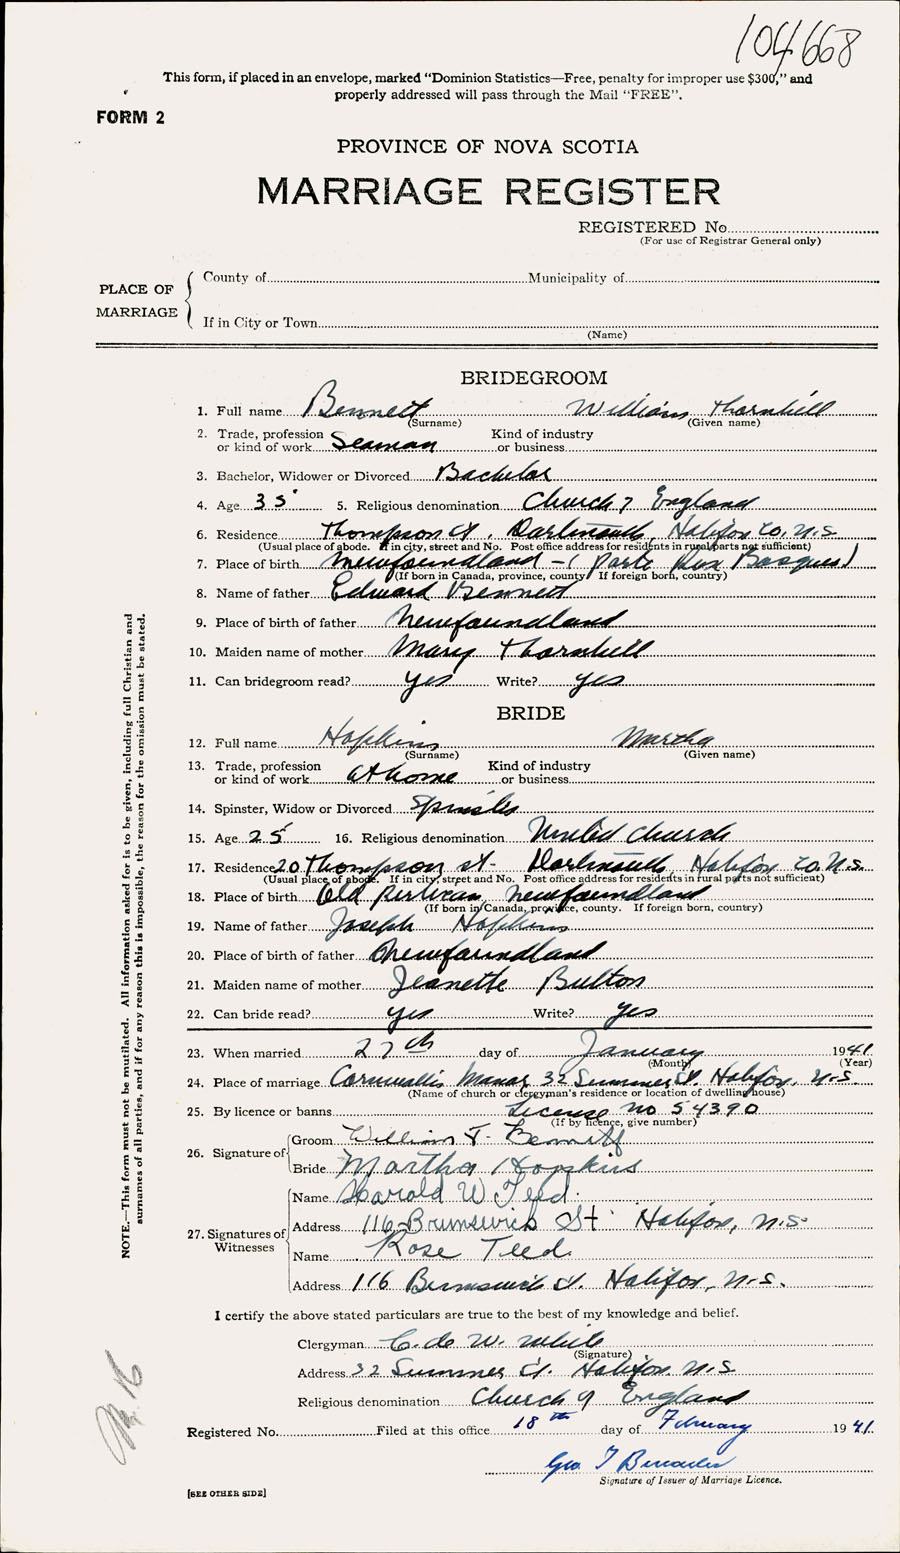 104668
This form, if placed in an envelope, marked "Dominion Statistics—Free, penalty for improper use $300," and
properly addressed will pass through the Mail "FREE".
FORM 2
PROVINCE OF NOVA SCOTIA
MARRIAGE REGISTER
REGISTERED No
(For use of Registrar General only)
PLACE OF MARRIAGE
County of Municipality of
If in City or Town
(Name)
BRIDEGROOM
1. Full name Bennett William Thornhill
(Surname) (Given name)
2. Trade, profession or kind of work Seaman Kind of industry or business
3. Bachelor, Widower or Divorced Bachelor
4. Age 35 5. Religious denomination Church of England
6. Residence Thompson St., Dartmouth, Halifax Co. N.S.
(Usual place of abode. If in city, street and No. Post office address for residents in rural parts not sufficient)
7. Place of birth Newfoundland - (Porte Aux Basques)
(If born in Canada, province, county If foreign born, country)
8. Name of father Edward Bennett
9. Place of birth of father Newfoundland
10. Maiden name of mother Mary Thornhill
11. Can bridegroom read? yes Write? yes
BRIDE
12. Full name Hopkins Martha
(Surname) (Given name)
13. Trade, profession or kind of work at home Kind of industry or business
14. Spinster, Widow or Divorced Spinster
15. Age 25 16. Religious denomination United Church
17. Residence 20 Thompson St- Dartmouth Halifax Co. N.S.
(Usual place of abode. If in city, street and No. Post office address for residents in rural parts not sufficient)
18. Place of birth Old Perlican, Newfoundland
(If born in Canada, province, county. If foreign born, country)
19. Name of father Joseph Hopkins
20. Place of birth of father Newfoundland
21. Maiden name of mother Jeanette Button
22. Can bride read? yes Write? yes
23. When married 27th day of January 1941
(Month) (Year)
24. Place of marriage Cornwallis Manor 32 Summer St. Halifax, N.S.
(Name of church or clergyman's residence or location of dwelling house)
25. By licence or banns License no 54390
(If by licence, give number)
26. Signature of
Groom William T. Bennett
Bride Martha Hopkins
27. Signatures of Witnesses
Name Harold W Teed.
Address 116 Brunswick St Halifax, N.S.
Name Rose Teed.
Address 116 Brunswick St. Halifax, N.S.
I certify the above stated particulars are true to the best of my knowledge and belief.
Clergyman C. de W. White
(Signature)
Address 32 Summer St. Halifax. N.S
Religious denomination Church of England
Registered No. Filed at this office 18th day of February 1941.
Geo. T
Signature of Issuer of Marriage Licence.
[SEE OTHER SIDE]
NOTE.—This form must not be mutilated. All information asked for is to be given, including full Christian and
surnames of all parties, and if for any reason this is impossible, the reason for the omission must be stated.